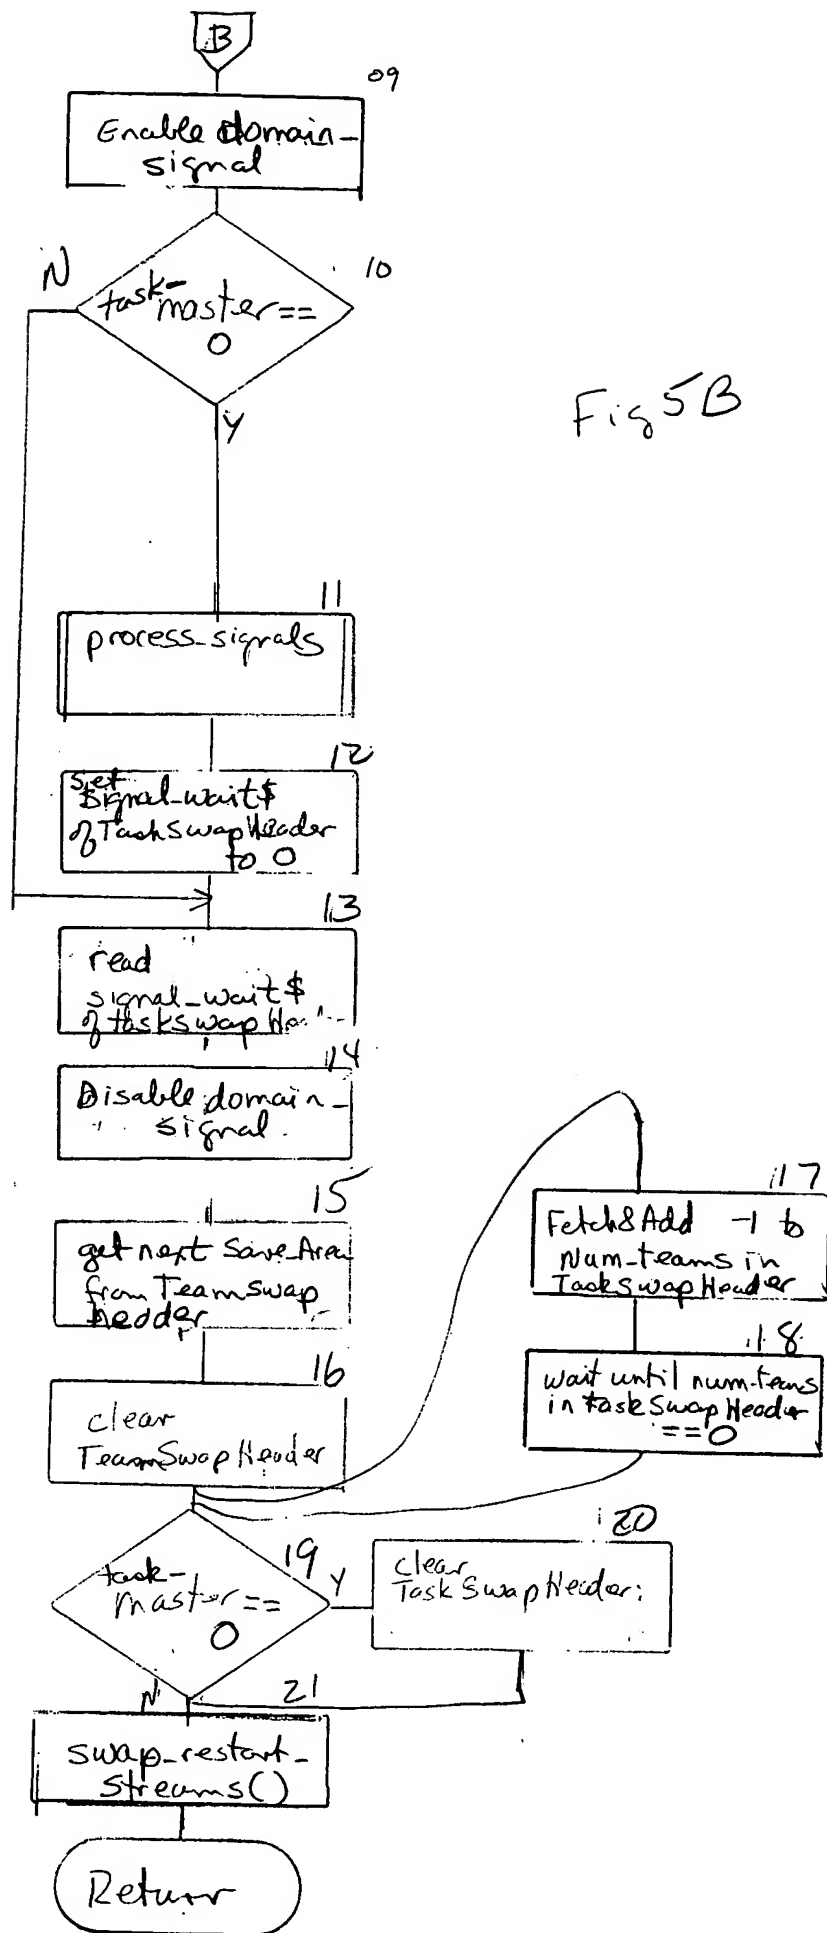 B
09
Enable domain-
signal
N
10
task-
master==
0
Y
Fig 5B
11
process_signals
12
set
signal_wait$
of TaskSwapHeader
to 0
13
read
signal_wait$
of taskSwap Hea
14
Disable domain-
signal.
15
get next Save_Area
from TeamSwap
hedder
16
clear
TeamSwapHeader
17
Fetch&Add -1 to
Num-teams in
TaskSwapHeader
18
wait until num-teams
in taskSwapHeader
==0
19
task-
master==
0
Y
20
clear
TaskSwapHeader;
N
21
swap_restart_
streams()
Return